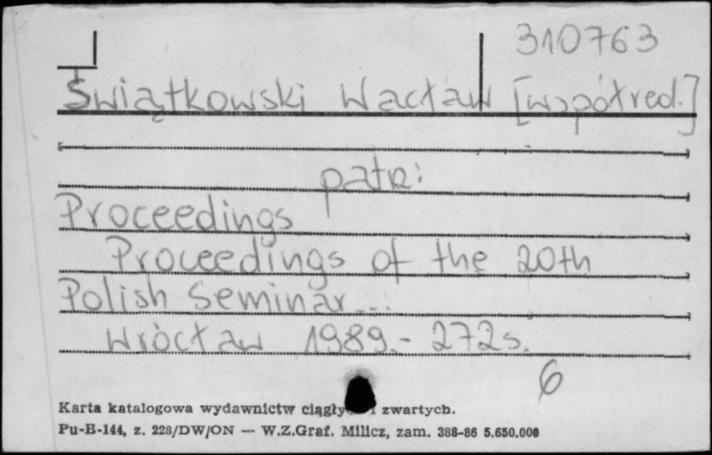 310763
Świątkowski Wacław [współred.]
patrz:
Proceedings
Proceedings of the 20th
Polish Seminar...
Wrocław 1989.- 272s.
6
Karta katalogowa wydawnictw ciągły i zwartych.
Pu-B-144, z. 228/DW/ON — W.Z.Graf. Milicz, zam. 388-86 5.650.000